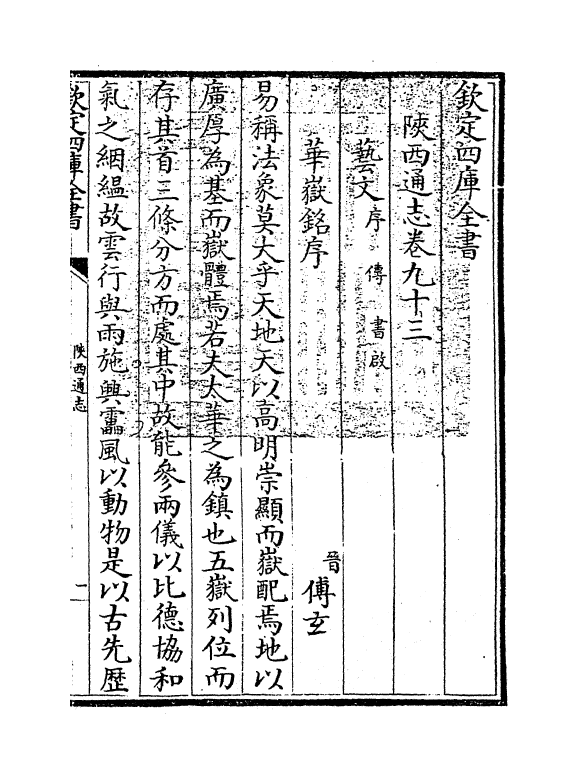 欽定四庫全書
陝西通志卷九十三
藝文序 傳 書啟
華嶽銘序
晉傅玄
易稱法象莫大乎天地天以高明崇顯而嶽配焉地以
廣厚為基而嶽體焉若夫太華之為鎮也五嶽列位而
存其首三條分方而處其中故能參兩儀以比德協和
氣之絪縕故雲行與雨施興靁風以動物是以古先歴
欽定四庫全書
陝西通志
一